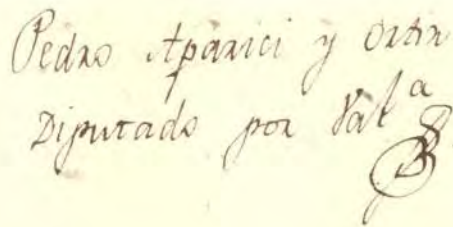 Pedro Aparici y Ortiz
Diputado por Val.ª